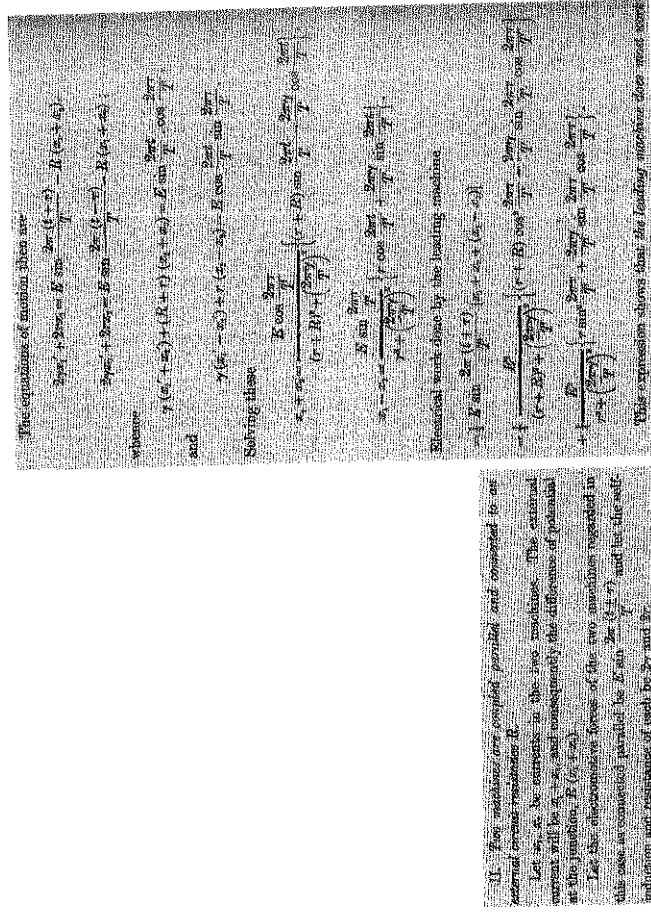 11. Two machines are coupled parallel and connected to an
external circuit resistance R.
Let x₁, x₂ be currents in the two machines. The external
current will be x₁ + x₂, and consequently the difference of potential
at the junction, R (x₁ + x₂).
Let the electromotive forces of the two machines regarded in
this case as connected parallel be E sin 2π (t ± τ)/T and let the self-
induction and resistance of each be 2γ and 2r.
The equations of motion then are
2γx₁′ + 2rx₁ = E sin 2π (t + τ)/T − R (x₁ + x₂).
2γx₂′ + 2rx₂ = E sin 2π (t − τ)/T − R (x₁ + x₂):
whence
γ (x₁′ + x₂′) + (R + r) (x₁ + x₂) = E sin 2πt/T cos 2πτ/T,
and
γ (x₁′ − x₂′) + r (x₁ − x₂) = E cos 2πt/T sin 2πτ/T.
Solving these
x₁ + x₂ = E cos 2πτ/T / ((r + R)² + (2πγ/T)²) {(r + R) sin 2πt/T − 2πγ/T cos 2πt/T}
x₁ − x₂ = E sin 2πτ/T / (r² + (2πγ/T)²) {r cos 2πt/T + 2πγ/T sin 2πt/T}.
Electrical work done by the leading machine
= ½ E sin 2π (t + τ)/T {x₁ + x₂ + (x₁ − x₂)}
= ¼ E² / ((r + R)² + (2πγ/T)²) {(r + R) cos² 2πτ/T − 2πγ/T sin 2πτ/T cos 2πτ/T}
+ ¼ E² / (r² + (2πγ/T)²) {r sin² 2πτ/T + 2πγ/T sin 2πτ/T cos 2πτ/T}.
This expression shows that the leading machine does most work